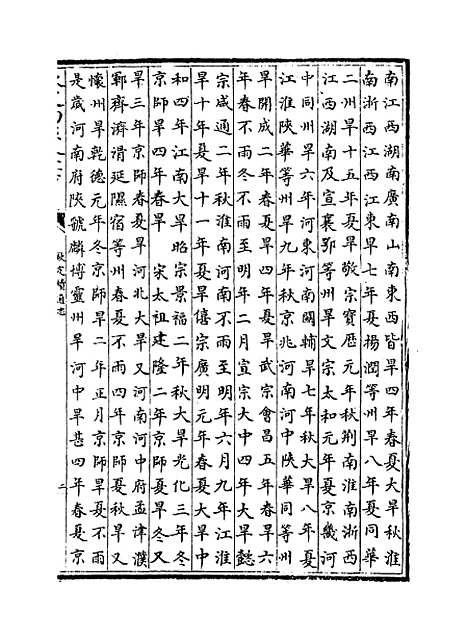 南江西湖南廣南山南東西皆旱四年春夏大旱秋淮
南浙西江西江東旱七年夏揚潤等州旱八年夏同華
二州旱十五年夏旱敬宗寶歷元年秋荆南淮南浙西
江西湖南及宣襄鄂等州旱文宗太和元年夏京畿河
中同州旱六年河東河南關輔旱七年秋大旱八年夏
江淮陝華等州旱九年秋京兆河南河中陝華同等州
旱開成二年春夏旱武宗會昌五年春旱六
年春不雨冬不雨至明年二月宣宗大中四年大旱懿
宗咸通二年秋淮南河南不雨至明年六月九年江淮
旱十年夏旱十一年夏旱僖宗廣明元年春夏大旱中
和四年江南大旱昭宗景福二年秋大旱光化三年冬
京師旱四年春旱 宋太祖建隆二年京師夏旱冬又
旱三年京師春夏旱河北大旱又河南河中府孟津濮
鄆齊濟滑延隰宿等州春夏不雨四年京師夏秋旱又
懷州旱乾德元年冬京師旱二年正月京師旱夏不雨
是歲河南府陝虢麟博靈州旱河中旱甚四年春夏京
欽定續通志
二